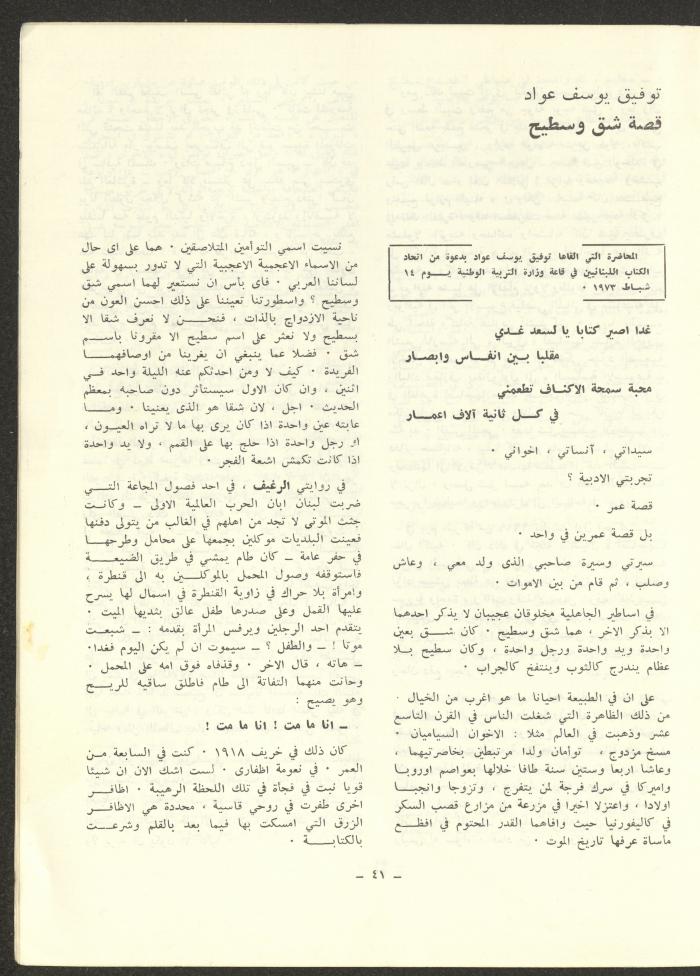 توفيق يوسف عواد
قصة شق وسطيح
المحاضرة التي القاها توفيق يوسف عواد بدعوة من اتحاد
الكتاب اللبنانيين في قاعة وزارة التربية الوطنية يـــوم ١٤
شبـاط ١٩٧٣ ٠
غدا اصير كتابا يا لسعد غـدي
مقلبا بـين انفـــاس وابصـار
محبة سمحة الاكنــاف تطعمني
في كـــل ثانية آلاف اعمــار
سيداتي ، آنساتي ، اخواني ٠
تجربتي الادبية ؟
قصة عمر ٠
بل قصة عمرين في واحد ٠
سيرتي وسيرة صاحبي الذى ولد معي ، وعاش
وصلب ، ثم قام من بين الاموات ٠
في اساطير الجاهلية مخلوقان عجيبان لا يذكر احدهما
الا بذكر الاخر ، هما شق وسطيح ٠ كان شـــق بعين
واحدة ويد واحدة ورجل واحدة ، وكان سطيح بـــلا
عظام يندرج كالثوب وينتفخ كالجراب ٠
على ان في الطبيعة احيانا ما هو اغرب من الخيال ٠
من ذلك الظاهرة التي شغلت الناس في القرن التاسع
عشر وذهبت في العالم مثلا : الاخوان السياميان ٠
مسخ مزدوج ، توأمان ولدا مرتبطين بخاصرتيهما ،
وعاشا اربعا وستين سنة طافا خلالها بعواصم اوروبـا
واميركا في سرك فرجة لمن يتفرج ، وتزوجا وانجبــا
اولادا ، واعتزلا اخيرا في مزرعة من مزارع قصب السكر
في كاليفورنيا حيث وافاهما القدر المحتوم في افظـــع
مأساة عرفها تاريخ الموت ٠
نسيت اسمي التوأمين المتلاصقين ٠ هما على اى حال
من الاسماء الاعجمية الاعجيبة التي لا تدور بسهولة على
لساننا العربي ٠ فاى بأس ان نستعير لهما اسمي شق
وسطيح ؟ واسطورتنا تعيننا على ذلك احسن العون من
ناحية الازدواج بالذات ، فنحـــــن لا نعرف شقا الا
بسطيح ولا نعثر على اسم سطيح الا مقرونا باســـم
شق ٠ فضلا عما ينبغي ان يغرينا من اوصافهمـــــا
الفريدة ٠ كيف لا ومن احدثكم عنه الليلة واحد فــي
اثنين ، وان كان الاول سيستأثر دون صاحبه بمعظم
الحديث ٠ اجل ، لان شقا هو الذى يعنينا ٠ ومـــا
عابته عين واحدة اذا كان يرى بها ما لا تراه العيــون ،
او رجل واحدة اذا حلج بها على القمم ، ولا يد واحدة
اذا كانت تكمش اشعة الفجر ٠
في روايتي الرغيف ، في احد فصول المجاعة التــــي
ضربت لبنان ابان الحرب العالمية الاولى ــ وكانــت
جثث الموتى لا تجد من اهلهم في الغالب من يتولى دفنها
فعينت البلديات موكلين بجمعها على محامل وطرحهـــا
في حفر عامة ــ كان طام يمشي في طريق الضيعــــة
فاستوقفه وصول المحمل بالموكلـــين به الى قنطرة ،
وامرأة بلا حراك في زاوية القنطرة في اسمال لها يسرح
عليها القمل وعلى صدرها طفل عالق بثديها الميت ٠
يتقدم احد الرجلين ويرفس المرأة بقدمه : ــ شبعــت
موتا ! ــ والطفل ؟ ــ سيموت ان لم يكن اليوم فغدا٠
ــ هاته ، قال الاخر ٠ وقذفاه فوق امه على المحمل ٠
وحانت منهما التفاتة الى طام فاطلق ساقيه للريـــح
وهو يصيح :
ــ انا ما مت ! انا ما مت !
كان ذلك في خريف ١٩١٨ ٠ كنت في السابعة مــن
العمر ٠ في نعومة اظفارى ٠ لست اشك الان ان شيئا
قويا نبت في فجأة في تلك اللحظة الرهيبة ٠ اظافــر
اخرى طفرت في روحي قاسية ، محددة هي الاظافــر
الزرق التي امسكت بها فيما بعد بالقلم وشرعـــت
بالكتابـــــة ٠
ــ ٤١ ــ